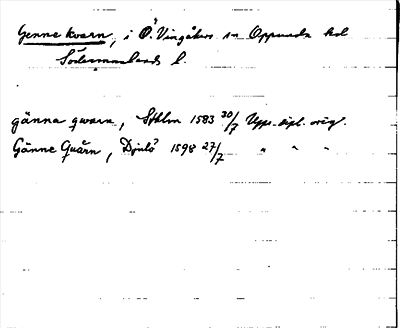 Genne kvarn, i Ö. Vingåkers sn Oppunda hd
Södermanlands l.
gänna qwarn, Sthlm 1583 30/7 Upps. dipl. orig.
Gänne Quărn, Djulö 1598 27/7 " " "